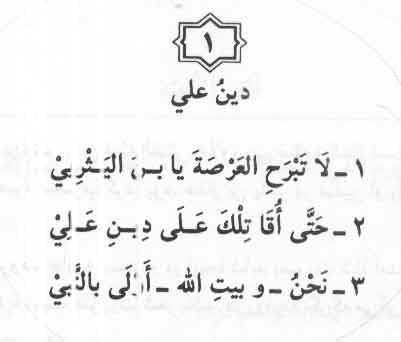 ١
دينُ علي
١ ـ لَا تَبْرَحِ العَرْصَةَ يا بـنَ اليَـثْرِبِيْ
٢ ـ حَتَّى أُقَاتِلْكَ عَـلَى دِيـنِ عَـلِيْ
٣ ـ نَحْنُ ـ و بيتِ الله ـ أَوْلَى بالنَّبِيْ